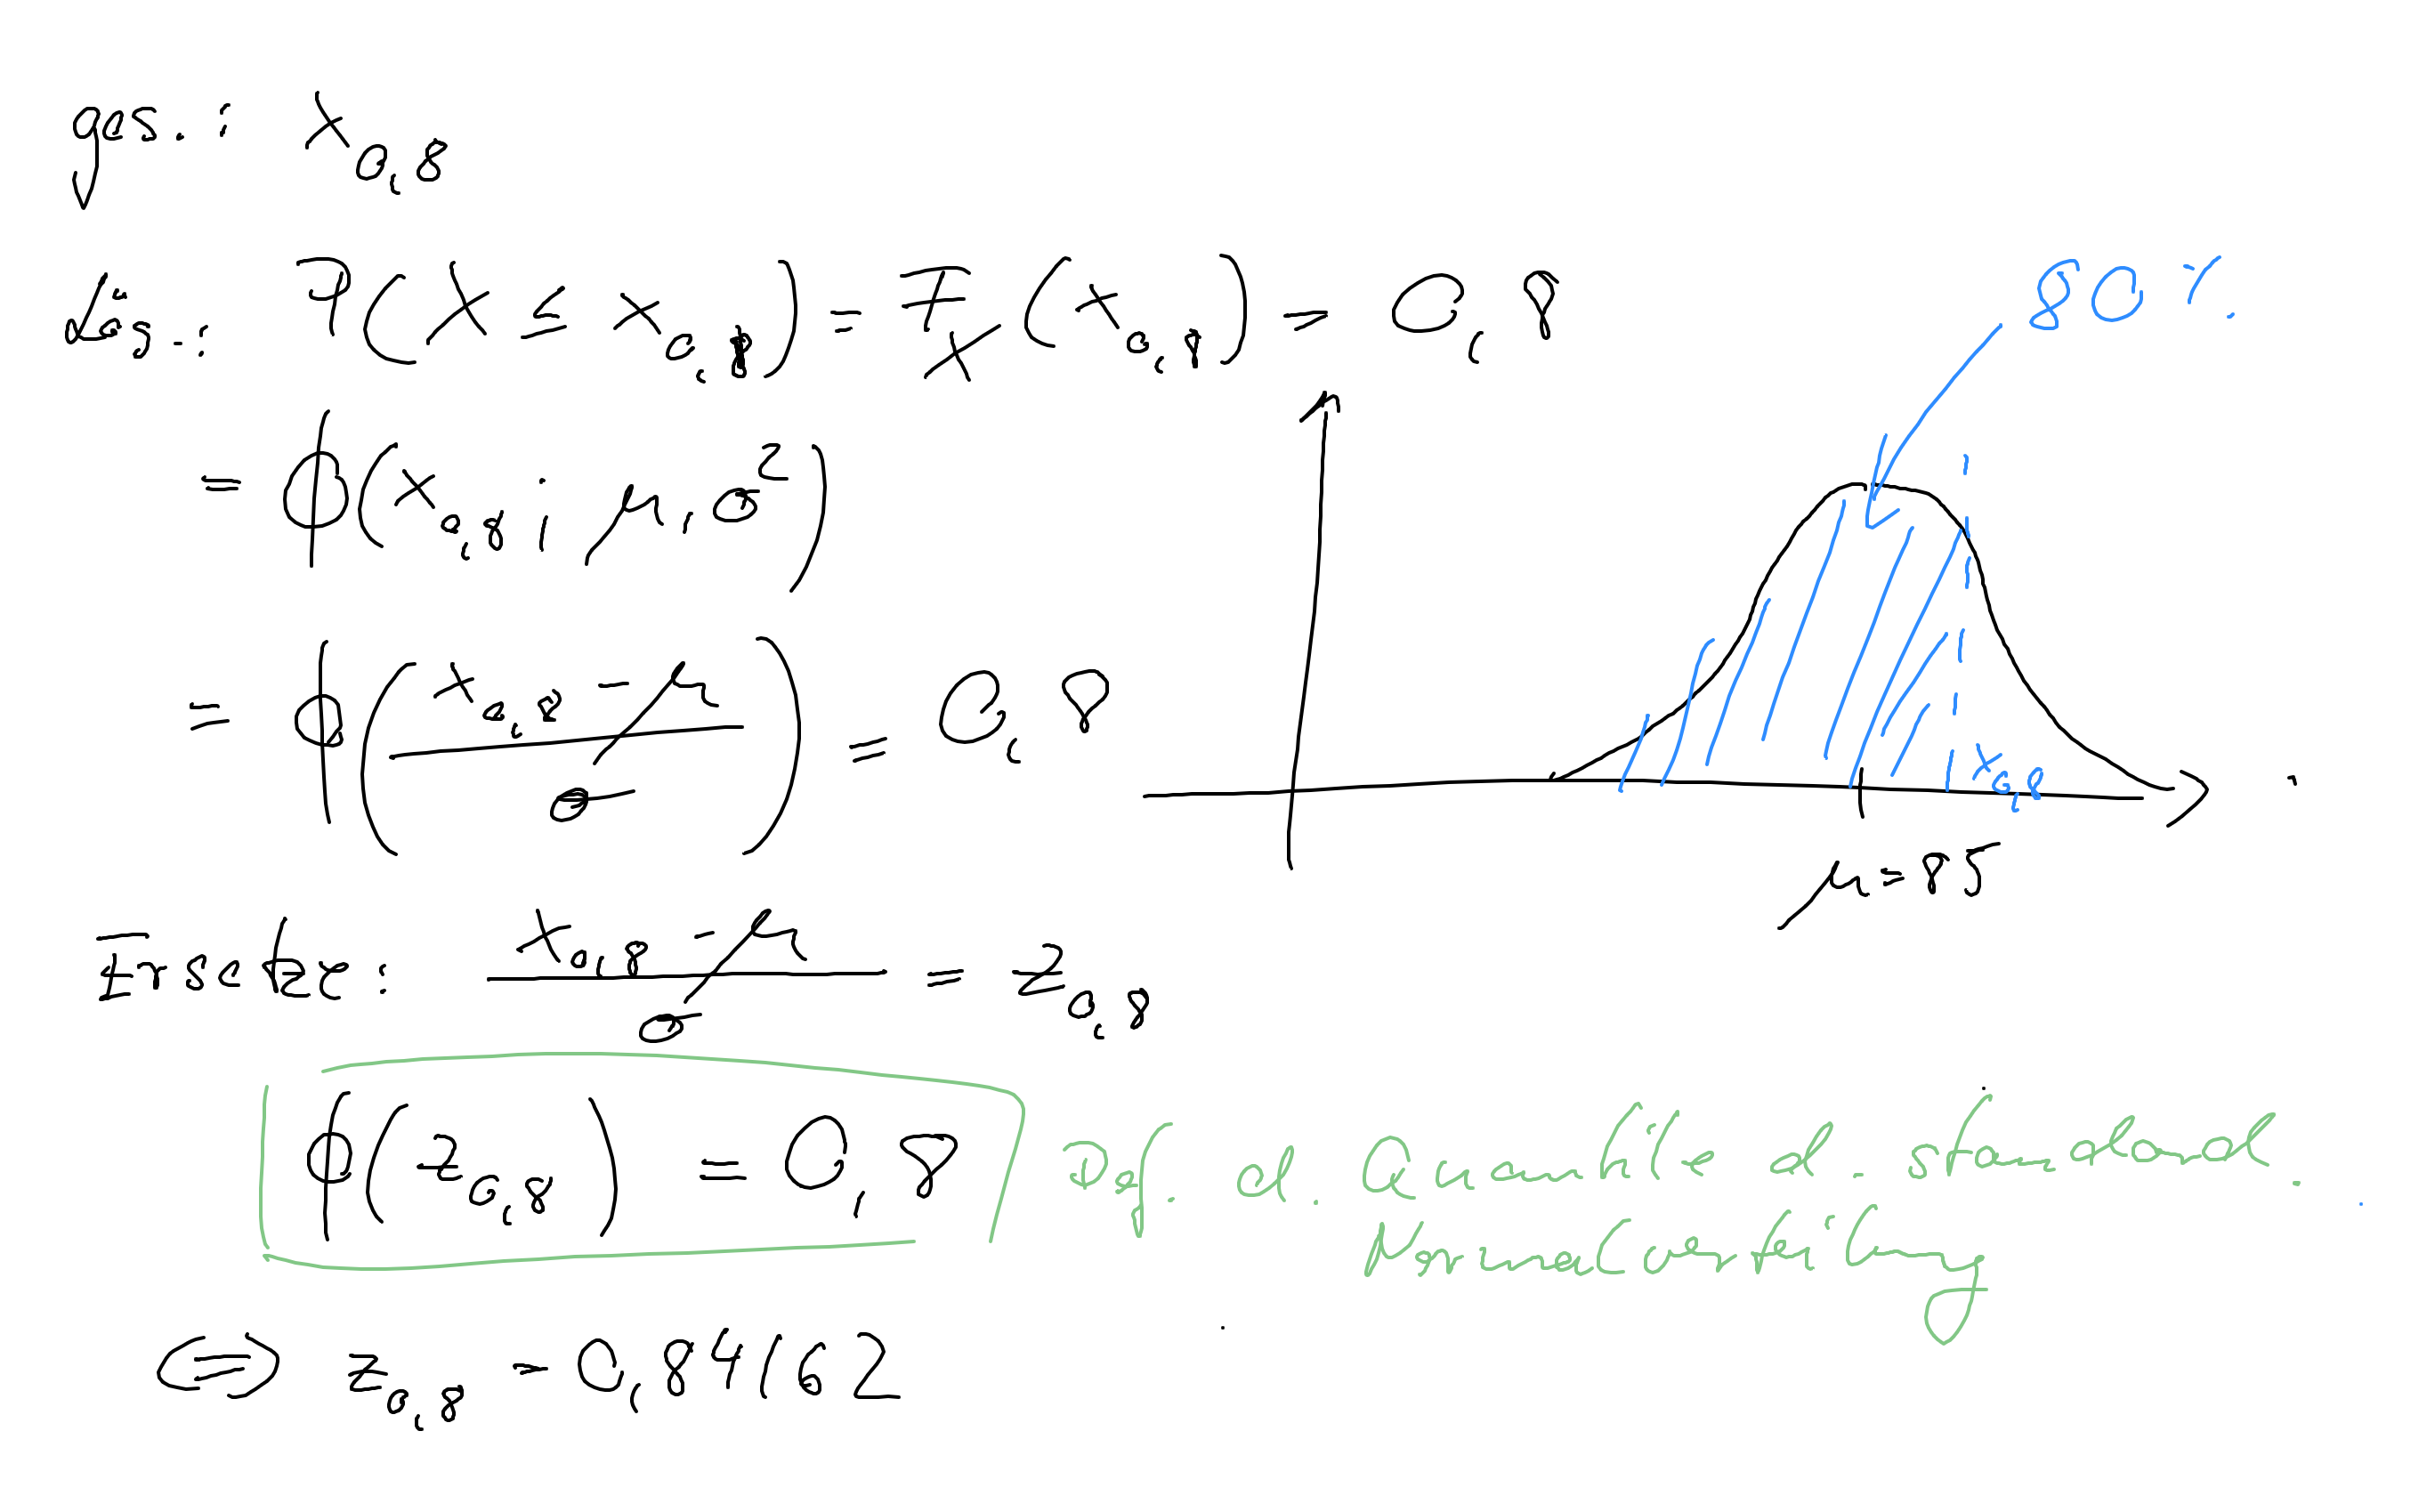 ges.: x_{0,8}
Lös.: P(X ≤ x_{0,8}) = F_X(x_{0,8}) = 0,8
80%
= ϕ(x_{0,8}; μ, σ²)
= ϕ((x_{0,8} - μ)/σ) = 0,8
x_{0,8}
μ = 85
Ersetze: (x_{0,8} - μ)/σ = z_{0,8}
ϕ(z_{0,8}) = 0,8
Def. d. Quantile d. standard.
Normalverteilung
⇔ z_{0,8} = 0,84162